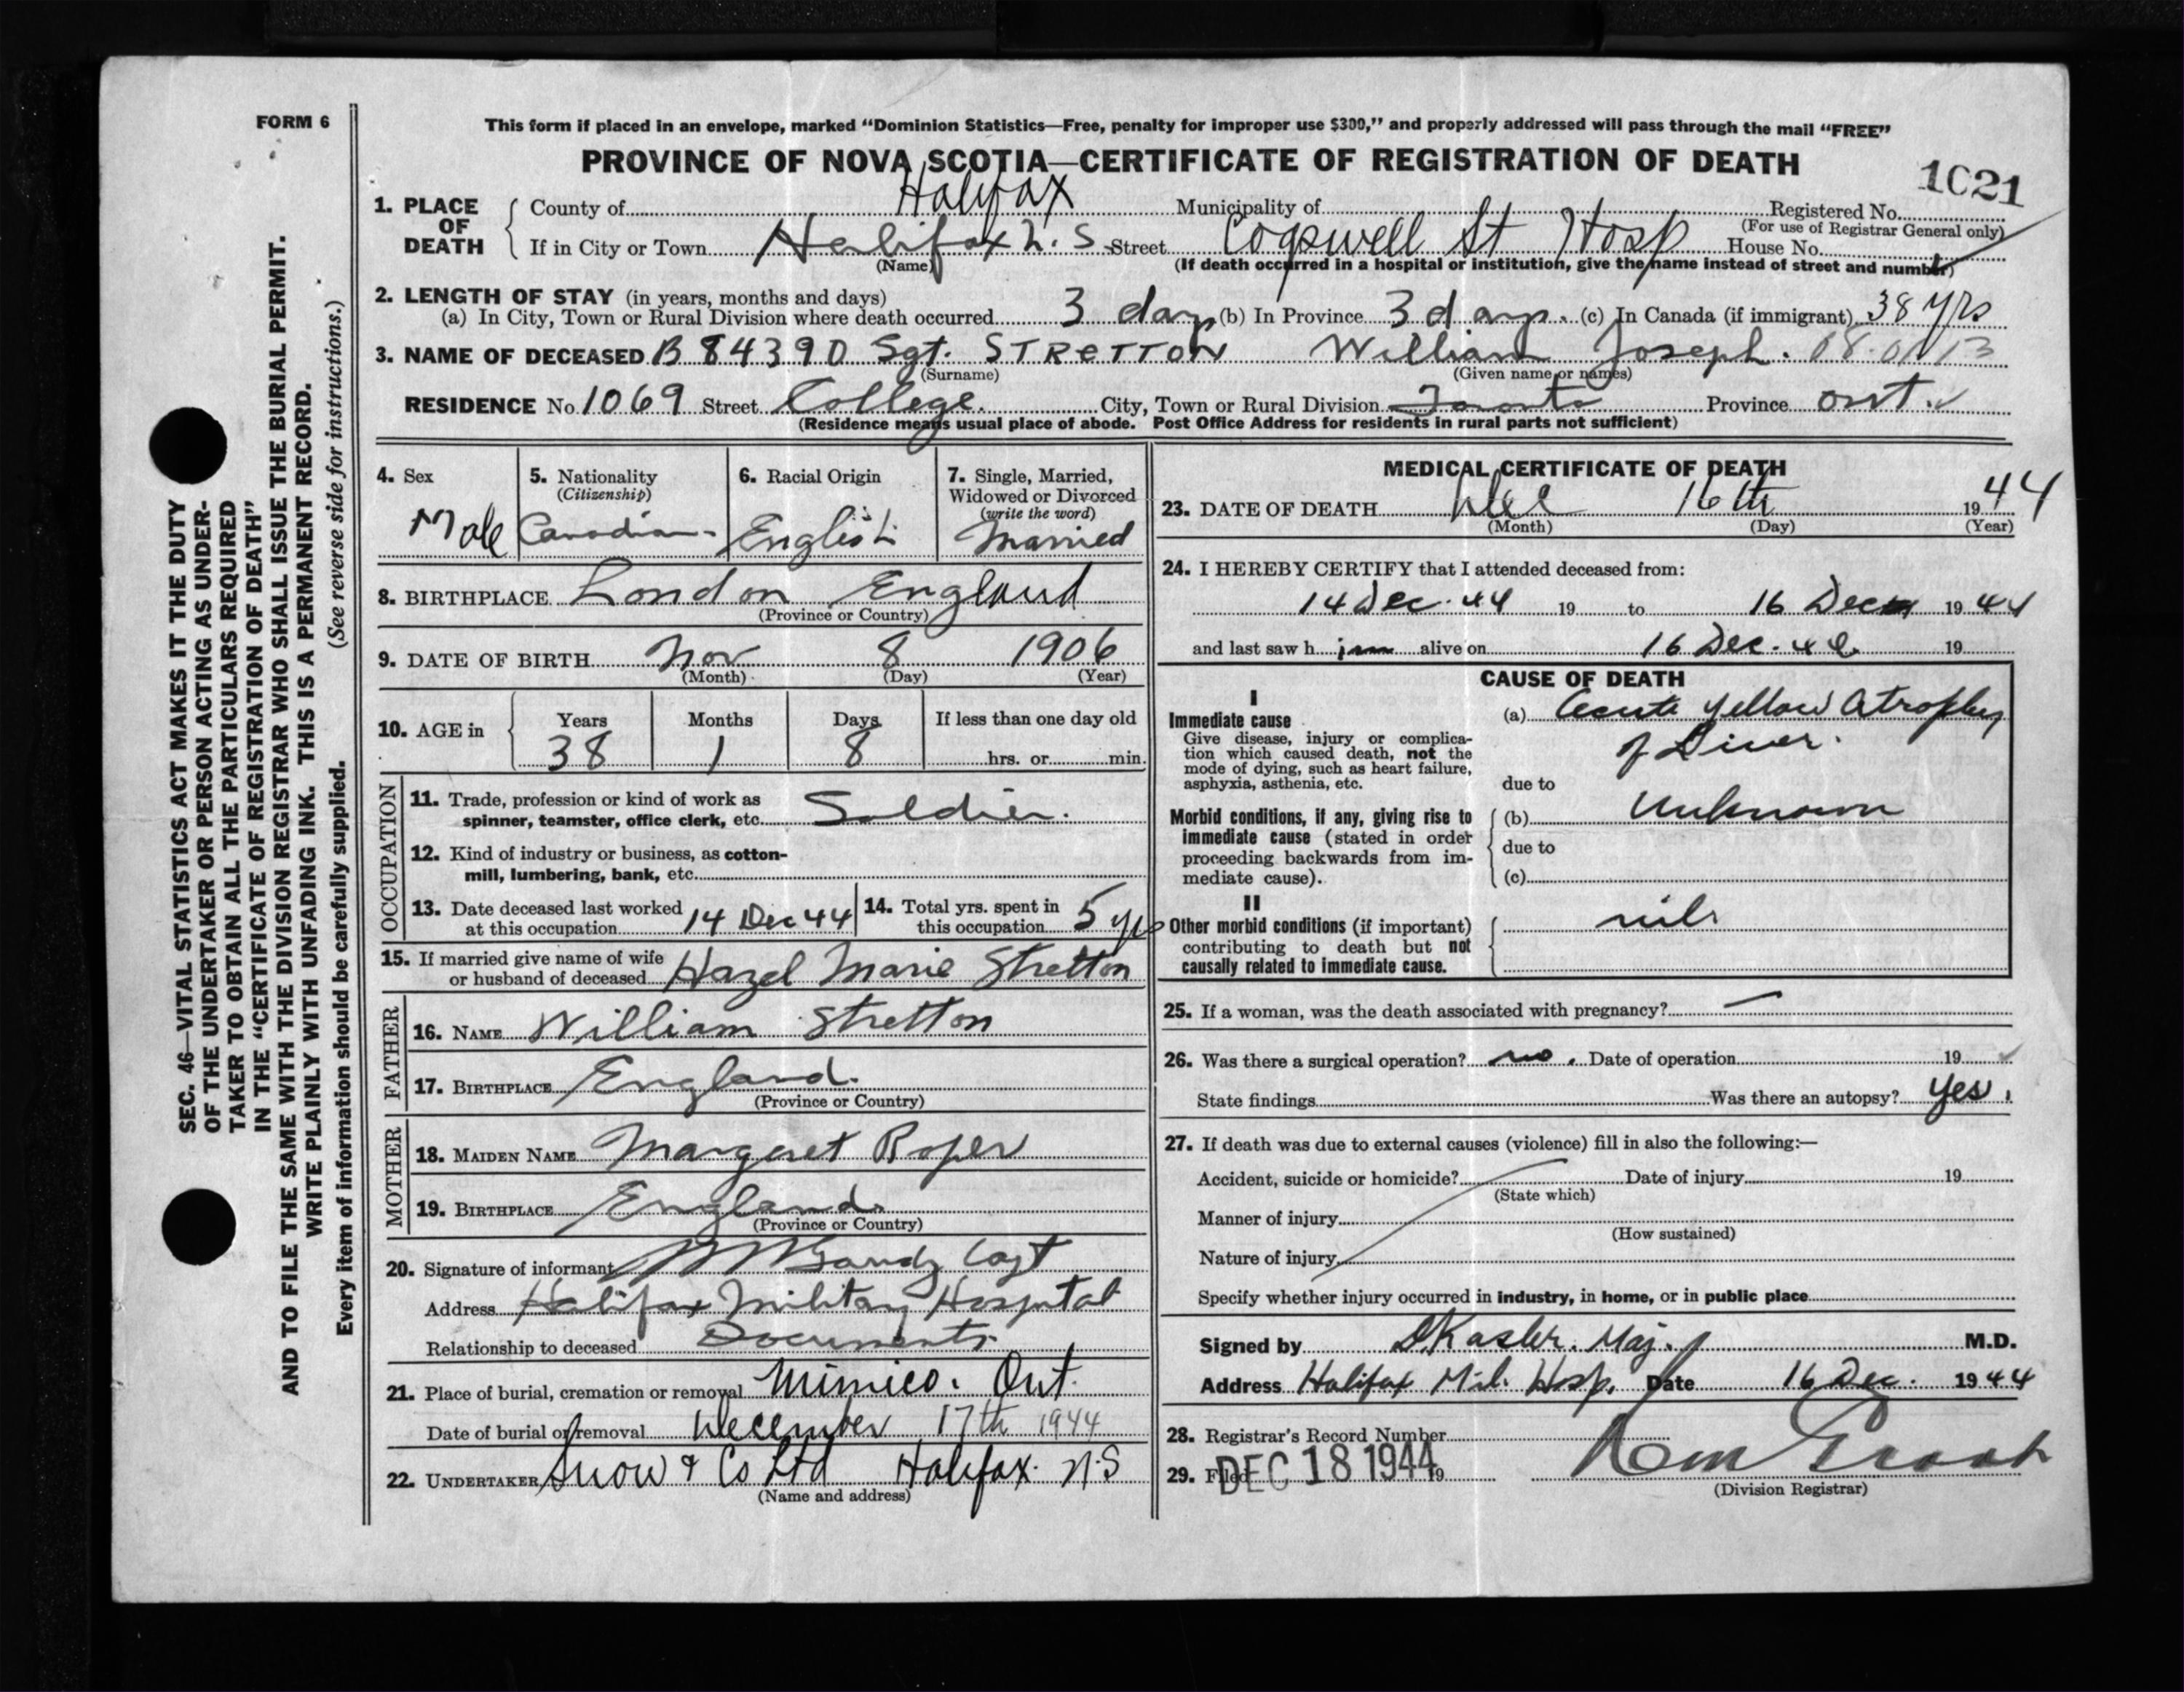 FORM 6
This form if placed in an envelope, marked “Dominion Statistics—Free, penalty for improper use $300,” and properly addressed will pass through the mail “FREE”
PROVINCE OF NOVA SCOTIA—CERTIFICATE OF REGISTRATION OF DEATH
1021
1. PLACE OF DEATH County of Halifax Municipality of Registered No.
(For use of Registrar General only)
If in City or Town Halifax N. S. Street Cogswell St Hosp House No.
(Name) (If death occurred in a hospital or institution, give the name instead of street and number)
2. LENGTH OF STAY (in years, months and days)
(a) In City, Town or Rural Division where death occurred 3 days (b) In Province 3 days. (c) In Canada (if immigrant) 38 yrs
3. NAME OF DECEASED B 84390 Sgt. STRETTON William Joseph.
(Surname) (Given name or names)
RESIDENCE No. 1069 Street College. City, Town or Rural Division Toronto Province Ont.
(Residence means usual place of abode. Post Office Address for residents in rural parts not sufficient)
4. Sex Male
5. Nationality (Citizenship) Canadian
6. Racial Origin English
7. Single, Married, Widowed or Divorced (write the word) Married
8. BIRTHPLACE London England
(Province or Country)
9. DATE OF BIRTH Nov 8 1906
(Month) (Day) (Year)
10. AGE in Years Months Days If less than one day old
38 1 8 hrs. or min.
OCCUPATION
11. Trade, profession or kind of work as
spinner, teamster, office clerk, etc. Soldier.
12. Kind of industry or business, as cotton-
mill, lumbering, bank, etc.
13. Date deceased last worked
at this occupation 14 Dec 44
14. Total yrs. spent in
this occupation 5 yrs
15. If married give name of wife
or husband of deceased Hazel Marie Stretton
FATHER
16. NAME William Stretton
17. BIRTHPLACE England.
(Province or Country)
MOTHER
18. MAIDEN NAME Margaret Roper
19. BIRTHPLACE England
(Province or Country)
20. Signature of informant Capt
Address Halifax Military Hospital
Relationship to deceased Documents
21. Place of burial, cremation or removal Mimico. Ont.
Date of burial or removal December 17th 1944
22. UNDERTAKER Snow & Co Ltd Halifax. N.S
(Name and address)
MEDICAL CERTIFICATE OF DEATH
23. DATE OF DEATH Dec 16th 1944
(Month) (Day) (Year)
24. I HEREBY CERTIFY that I attended deceased from:
14 Dec. 44 19 to 16 Dec 1944
and last saw him alive on 16 Dec. 44 19
CAUSE OF DEATH
I
Immediate cause
Give disease, injury or complica-
tion which caused death, not the
mode of dying, such as heart failure,
asphyxia, asthenia, etc.
(a) Acute yellow atrophy
of Liver.
due to
Morbid conditions, if any, giving rise to
immediate cause (stated in order
proceeding backwards from im-
mediate cause).
(b) Unknown
due to
(c)
II
Other morbid conditions (if important)
contributing to death but not
causally related to immediate cause.
nil.
25. If a woman, was the death associated with pregnancy? —
26. Was there a surgical operation? no. Date of operation 19
State findings Was there an autopsy? yes.
27. If death was due to external causes (violence) fill in also the following:—
Accident, suicide or homicide? Date of injury 19
(State which)
Manner of injury
(How sustained)
Nature of injury
Specify whether injury occurred in industry, in home, or in public place
Signed by Kasler. Maj. M.D.
Address Halifax Mil. Hosp. Date 16 Dec. 1944
28. Registrar's Record Number
29. Filed DEC 18 1944 19
(Division Registrar)
SEC. 46—VITAL STATISTICS ACT MAKES IT THE DUTY
OF THE UNDERTAKER OR PERSON ACTING AS UNDER-
TAKER TO OBTAIN ALL THE PARTICULARS REQUIRED
IN THE “CERTIFICATE OF REGISTRATION OF DEATH”
AND TO FILE THE SAME WITH THE DIVISION REGISTRAR WHO SHALL ISSUE THE BURIAL PERMIT.
WRITE PLAINLY WITH UNFADING INK. THIS IS A PERMANENT RECORD.
Every item of information should be carefully supplied. (See reverse side for instructions.)